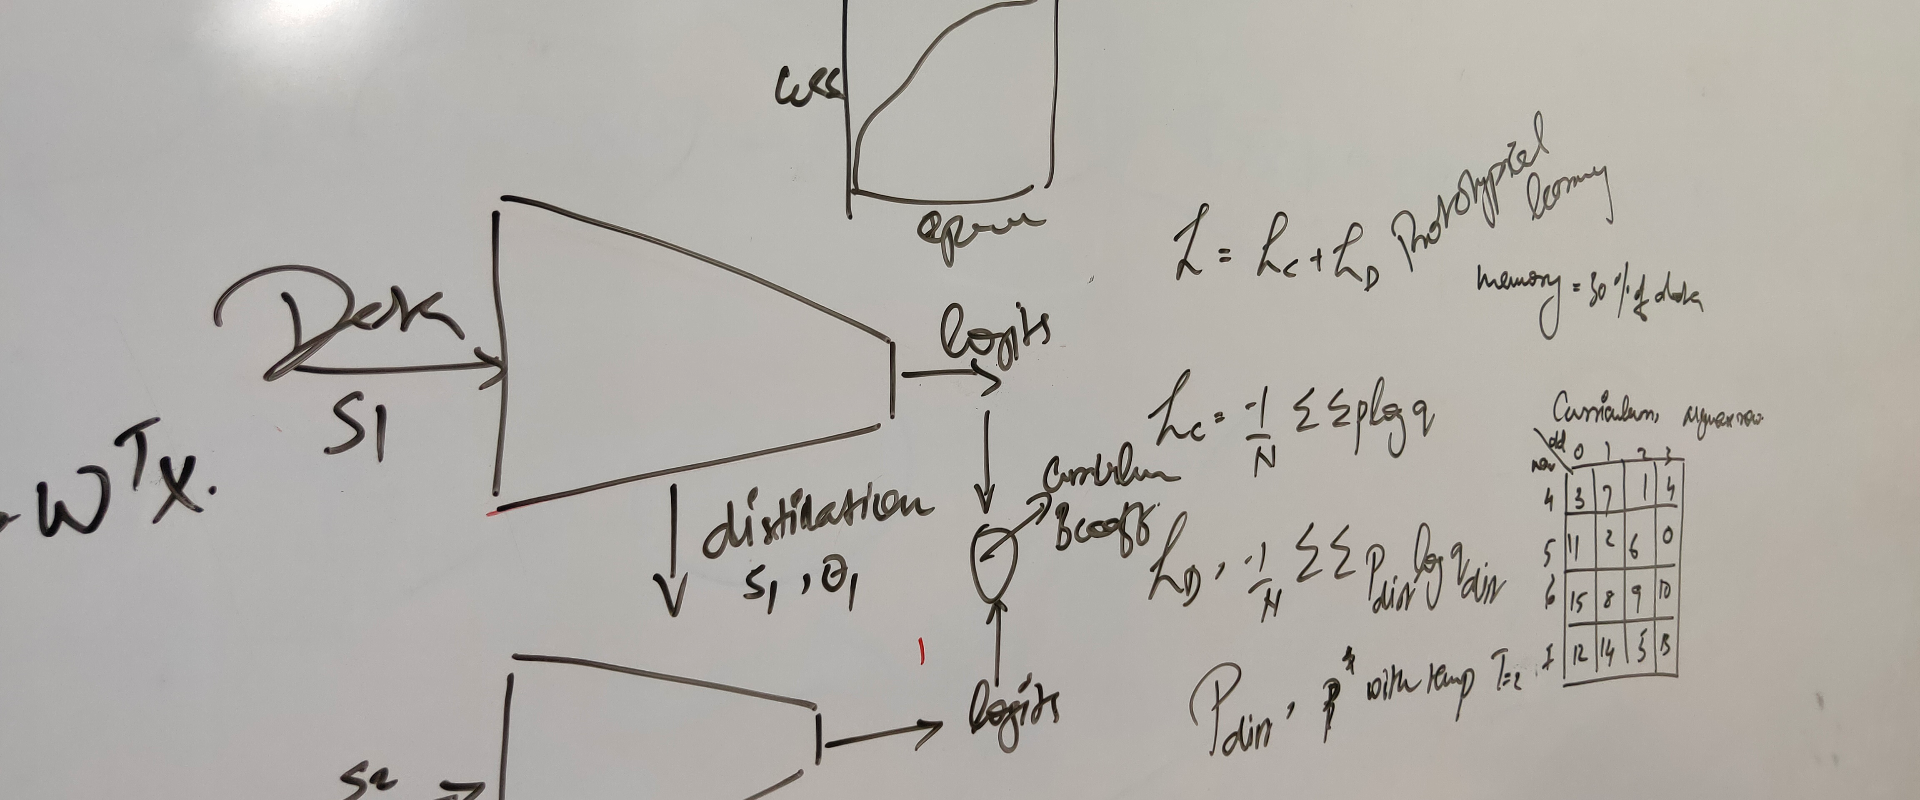 Loss
Data
S1
logits
W^T X.
distillation
S1, θ1
curriculum
logits
S2
L = L_C + L_D Prototypical
learning
memory = 30% of data
L_C = -1/N ΣΣ p log q
L_D, -1/N ΣΣ P_dist log q_dist
P_dist, with temp T=2
Curriculum,
old 0 1 2 3
new
4 3 7 1 4
5 11 2 6 0
6 15 8 9 10
7 12 14 5 13